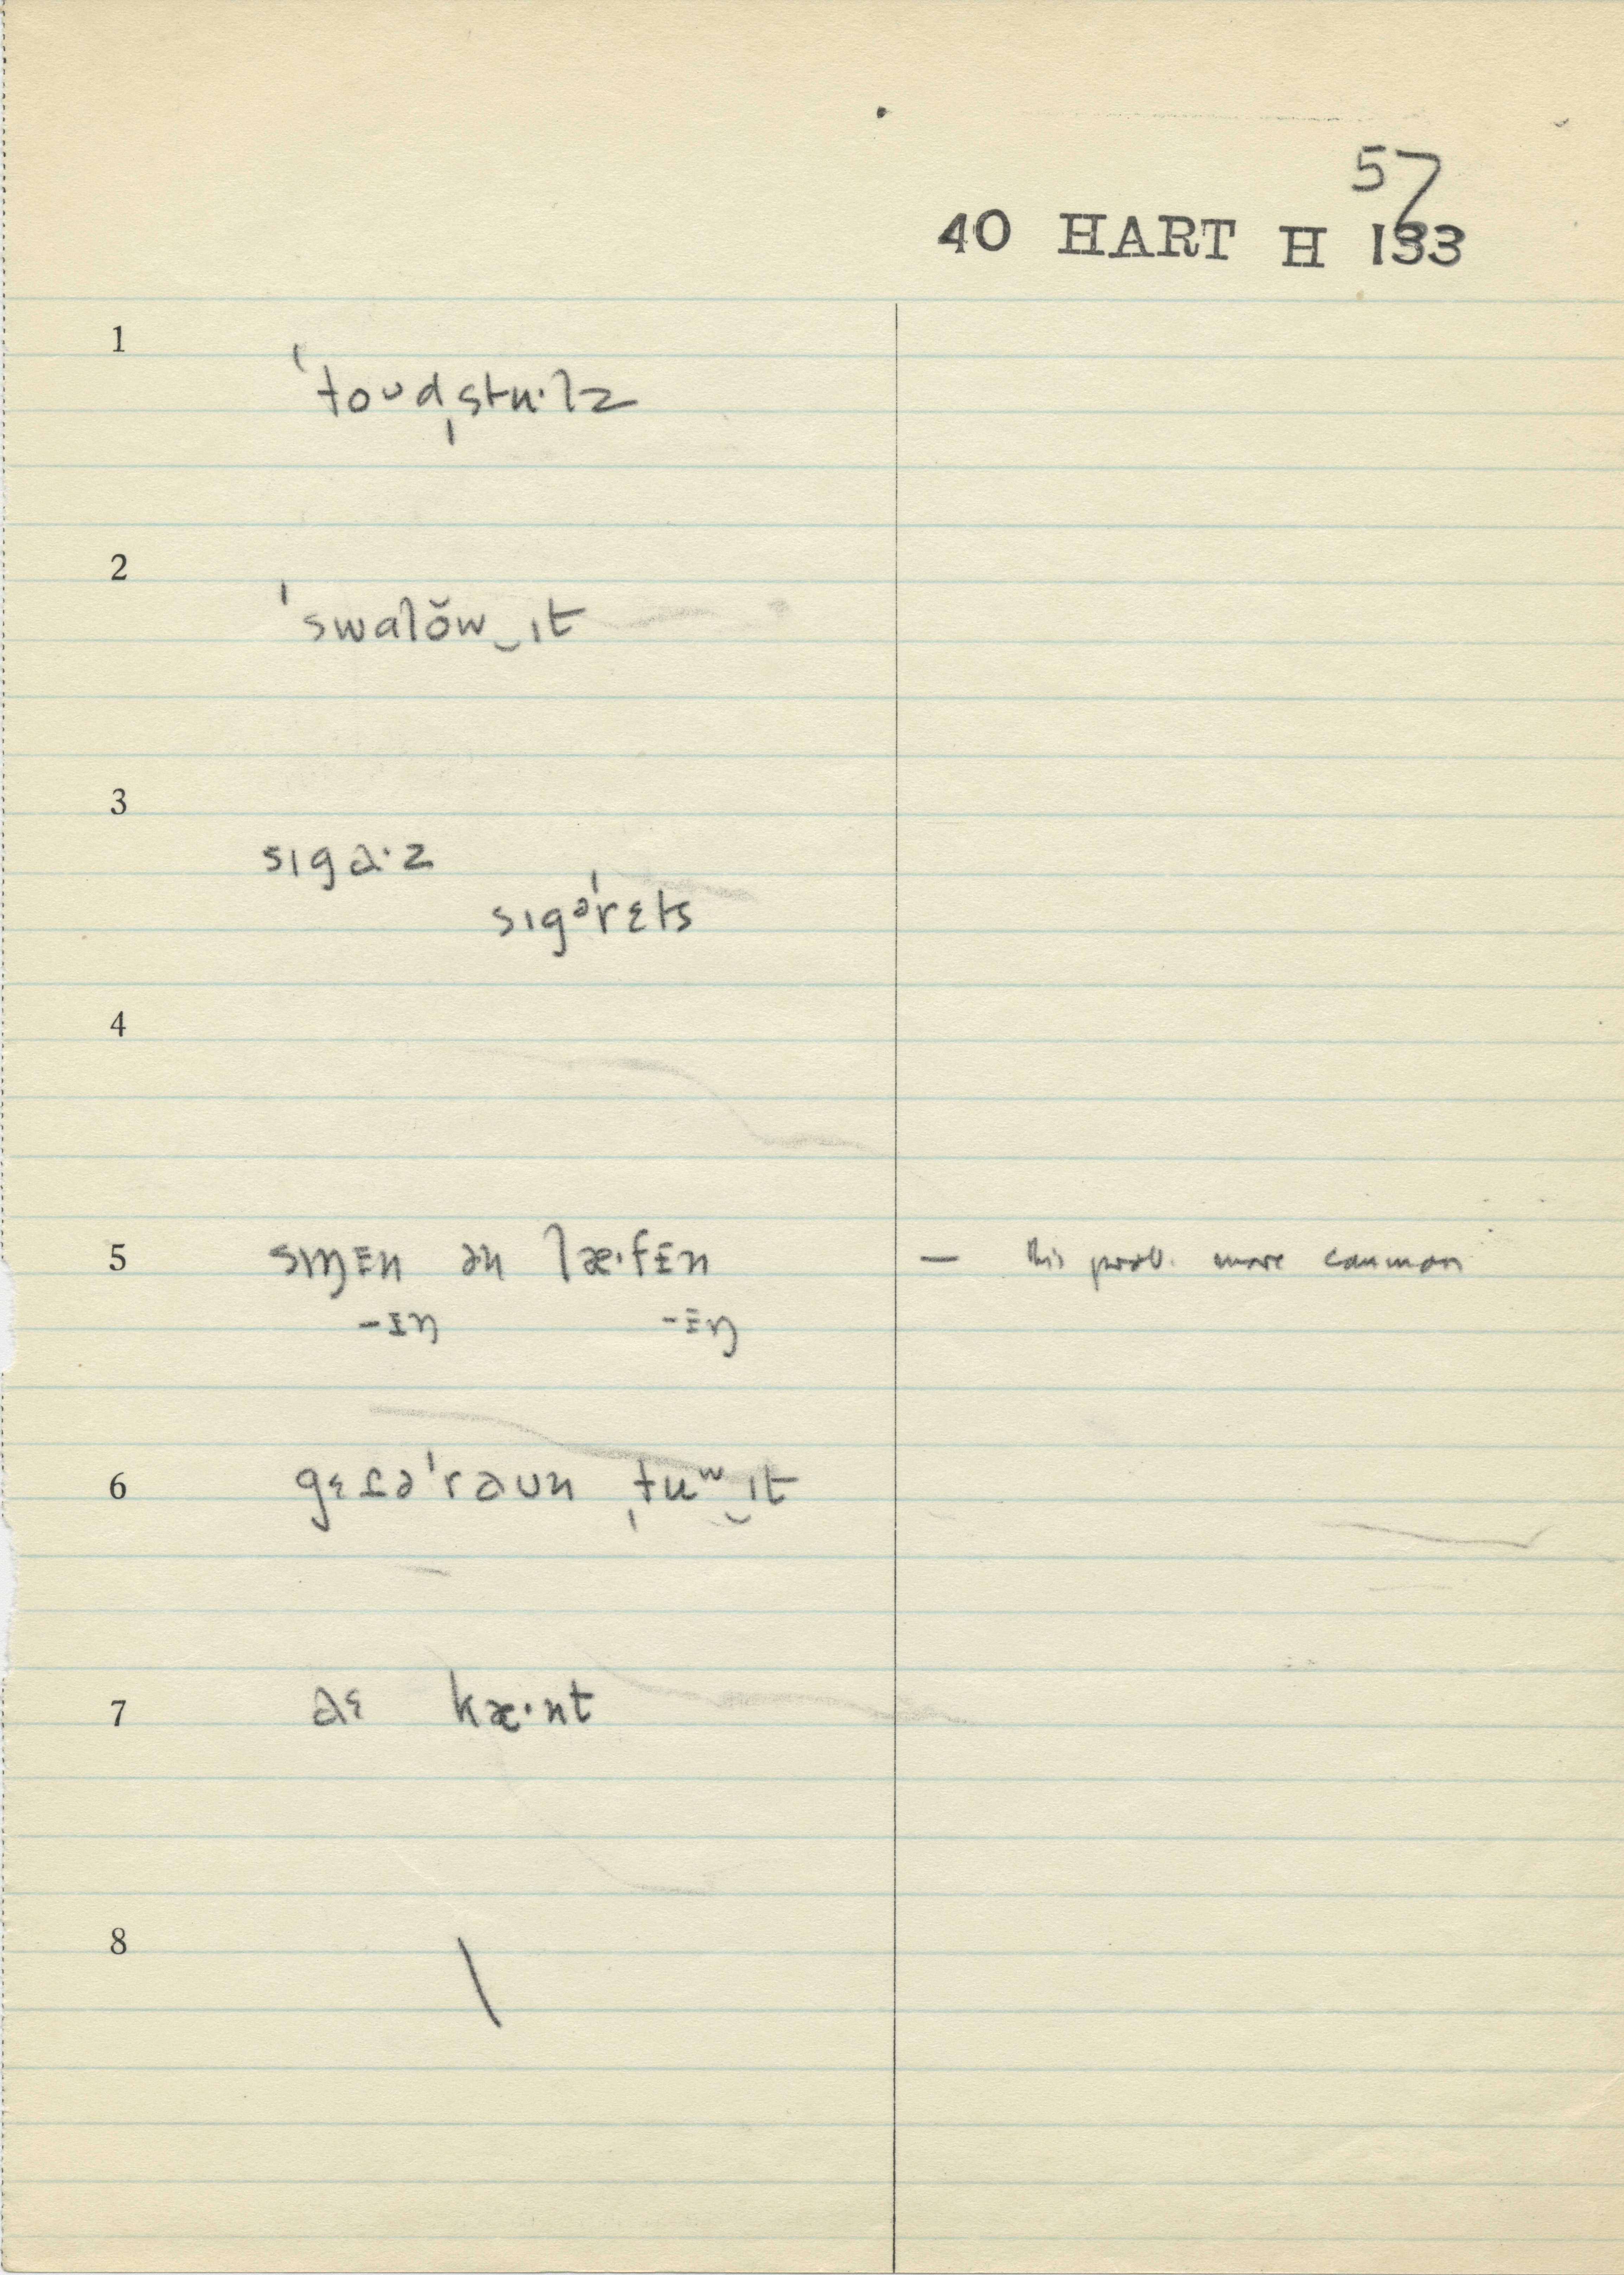 57
40 HART H 133
1
ˈtoᴜdˌstu·lz
2
ˈswɑlŏw‿ɪt
3
sɪgɑ·z
sɪgəˈrɛts
4
5 sɪŋᵻn ən læ·fᵻn — this prob. more common
-ᵻŋ -ᵻŋ
6 gɛɾəˈraᴜn ˌtuʷ‿ɪt
7 aɛ kæ·nt
8
\